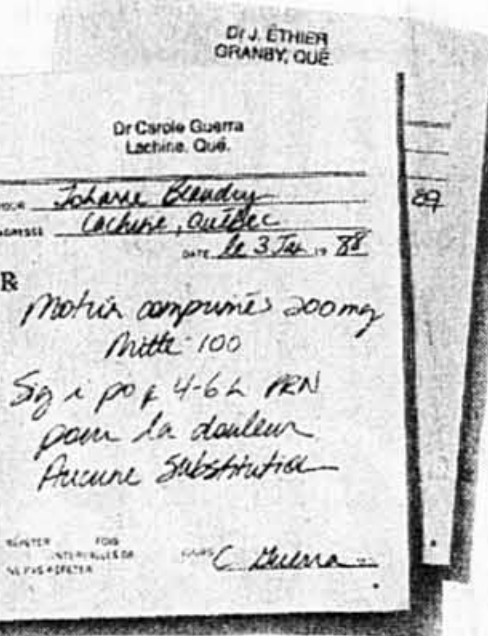 Dr J. ÉTHIER
GRANBY, QUÉ.
Dr Carole Guerra
Lachine, Qué.
POUR Johanne Beaudry
ADRESSE Lachine, Québec
DATE le 3 Jan 19 88
89
℞
Motrin comprimés 200 mg
Mitte 100
Sig i po q 4-6 h PRN
pour la douleur
Aucune substitution
RÉPÉTER FOIS
INTERVALLES DE
NE PAS RÉPÉTER
C Guerra